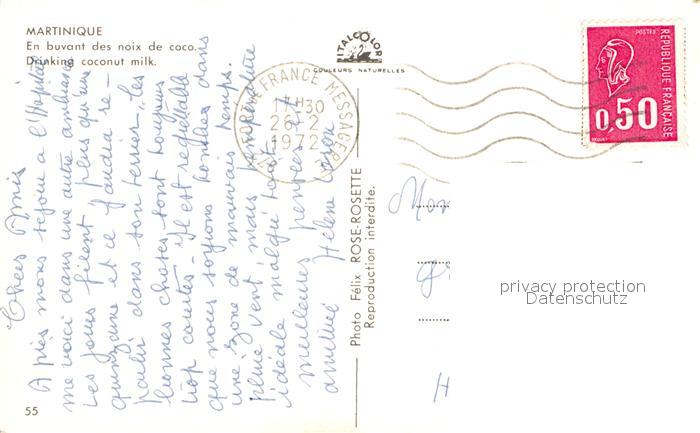 MARTINIQUE
En buvant des noix de coco.
Drinking coconut milk.
ITALCOLOR
COULEURS NATURELLES
POSTES
REPUBLIQUE FRANÇAISE
0,50
FORT DE FRANCE MESSAGERIE
17H30
26-2
1972
Chers Amis
Après mon séjour à l'Hôpital
me voici dans une autre ambiance
Les jours filent plus qu'une
quinzaine et il faudra re-
partir dans son terrier, les
bonnes choses sont toujours
trop courtes - Il est regrettable
que nous soyions tombés dans
une zone de mauvais temps.
pluie vent mais température
idéale malgré tout
meilleures pensées et
amitié Hélène
Photo Félix ROSE-ROSETTE
Reproduction interdite.
privacy protection
Datenschutz
55